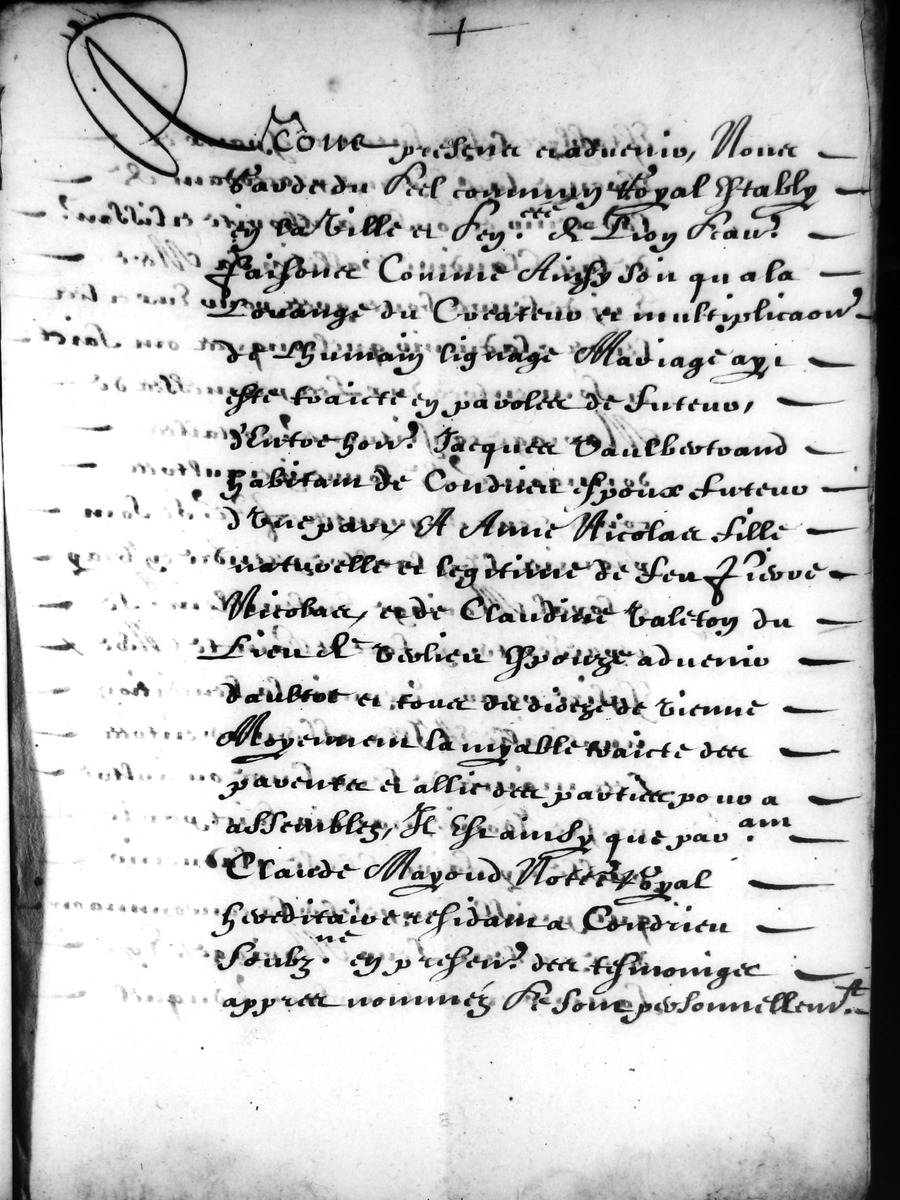 A Tous presens et advenir, Nous
Garde du Seel commun Royal Estably
en la Ville et Sen.ᶜᵉᵉ de Lion scav.
Faisons Comme Ainsy soit qu a la
Louange du Createur et multiplicaon
de Lhumain lignage Mariage ayt
este traicte en parolles de futeur,
d'Entre hon. Jacques Vaulbertrand
habitant de Condrieu espoux futeur
d'Une part, Et Anne Nicolas fille
naturelle et legitime de feu Pierre
Nicolas, et de Claudine Valeton du
Lieu de Verlieu Espouze advenir
d'aultre et tous du dioceze de Vienne
Moyennent lamyable traicte des
parentz et allie des parties pour a
assemblez, Il Est ainsy que par am
Claude Mayoud Not.ʳᵉ Royal
hereditaire residant a Condrieu
Soubz.ⁿᵉ en presen. des tesmoings
appres nomméz Se sont personnellem.ᵗ